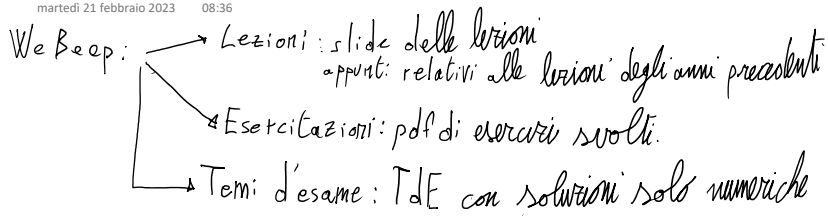 martedì 21 febbraio 2023 08:36
WeBeep: Lezioni: slide delle lezioni
appunti relativi alle lezioni degli anni precedenti
Esercitazioni: pdf di esercizi svolti.
Temi d'esame: TdE con soluzioni solo numeriche